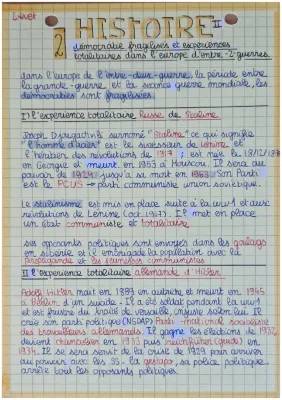 Livret
2 HISTOIRE II
démocratie fragilisés et expériences
totalitaires dans l'europe d'entre-2-guerres.
dans l'europe de l'entre-deux-guerre, la période entre
la grande-guerre et la seconde guerre mondiale, les
démocraties sont fragilisées.
I l'expérience totalitaire Russe de Staline
surnommé "Staline" ce qui signifie
"l'homme d'acier" est le successeur de Lénine et
l'héritier des révolutions de 1917 ; est née le 18/12/1878
en Géorgie et meurt en 1953 à Moscou. Il sera au
pouvoir de 1924 jusqu'à sa mort en 1953 Son Parti
est le PCUS → parti communiste union soviétique.
Le stalinisme est mis en place suite à la ww1 et aux
révolutions de Lénine (oct 1917). Il met en place
un état communiste et totalitaire
ses opposants politiques sont envoyés dans les goulags
en sibérie et il embrigade la population avec la
propagande et les jeunesses communistes
II l'expérience totalitaire allemande d'Hitler
Adolf Hitler nait en 1889 en autriche et meurt en 1945
à Berlin d'un suicide - Il a été soldat pendant la ww1
et est frustré du traité de versaille, injuste selon lui. Il
crée son parti politique (NSDAP) Parti national socialiste
des travailleurs allemands. Il gagne les élections de 1932
devient chancelier en 1933 puis reichführer (guide) en
1934. Il se sera servit de la crise de 1929 pour arriver
au pouvoir avec les SS - la gestapo, sa police politique
arrête tout les opposants politiques